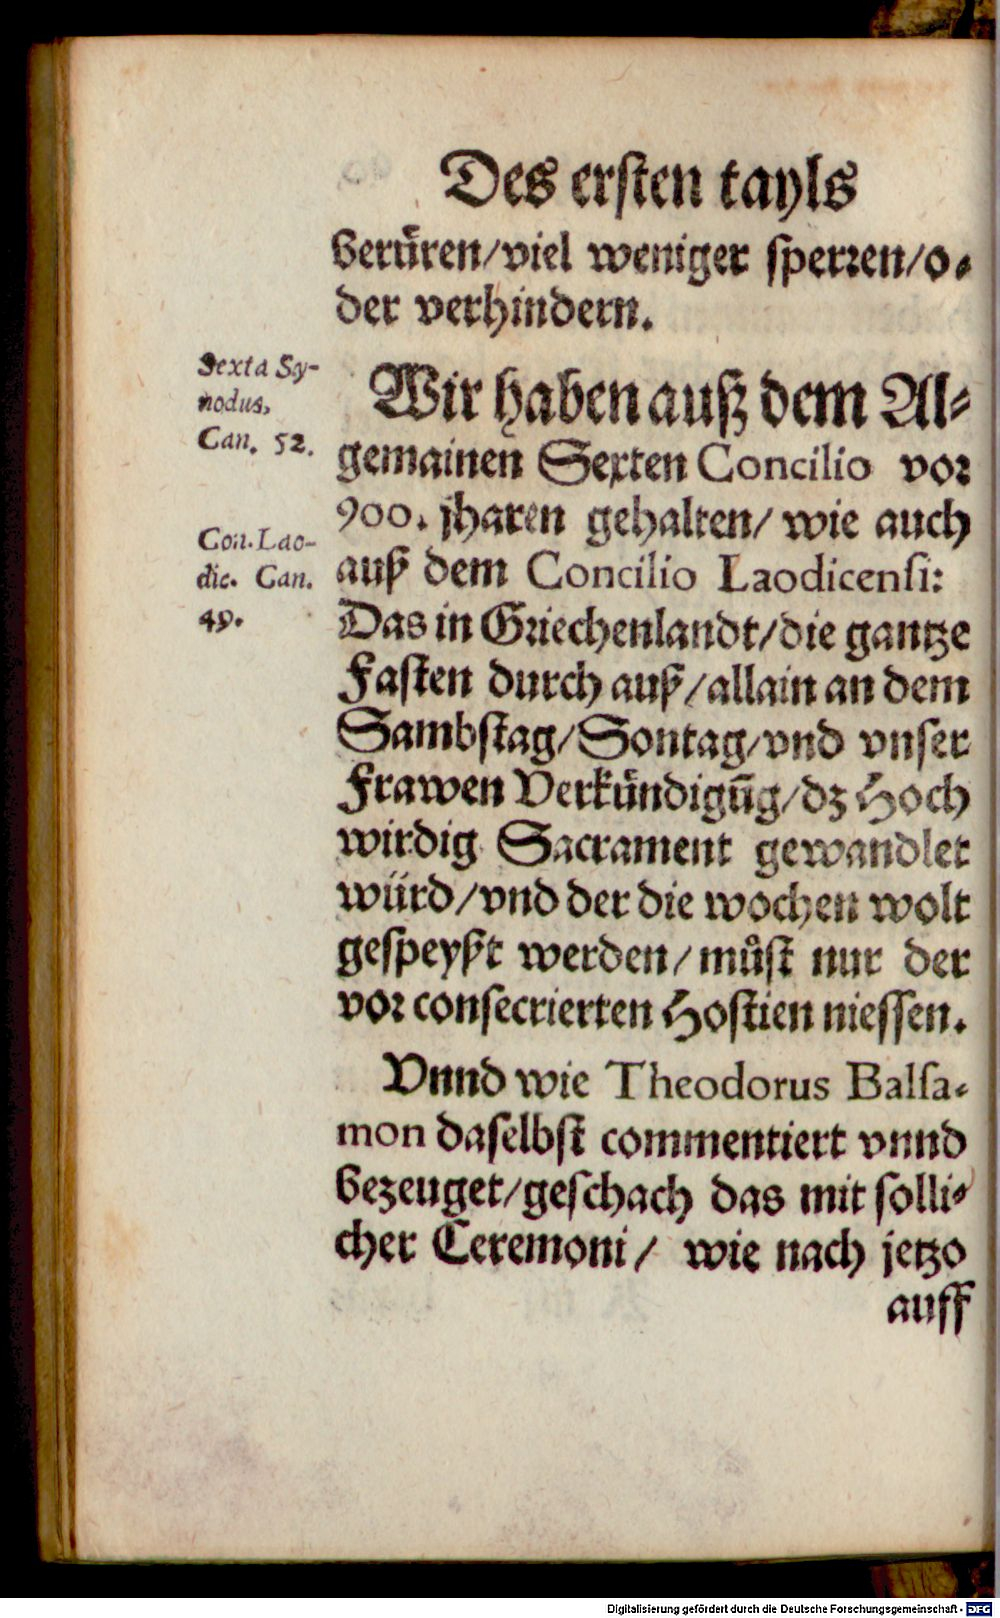 Des ersten tayls
berüren/viel weniger sperren/o-
der verhindern.
Sexta Sy-
nodus,
Can. 52.
Wir haben auß dem Al-
gemainen Sexten Concilio vor
900. jharen gehalten/ wie auch
Con. Lao-
dic. Can.
49.
auß dem Concilio Laodicensi:
Das in Griechenlandt/die gantze
Fasten durch auß/allain an dem
Sambstag/Sontag/vnd vnser
Frawen Verkündigūg/dz Hoch
wirdig Sacrament gewandlet
würd/vnd der die wochen wolt
gespeyßt werden/ můst nur der
vor consecrierten Hostien niessen.
Vnnd wie Theodorus Balsa-
mon daselbst commentiert vnnd
bezeuget/geschach das mit solli-
cher Ceremoni/ wie nach jetzo
auff
Digitalisierung gefördert durch die Deutsche Forschungsgemeinschaft - DFG